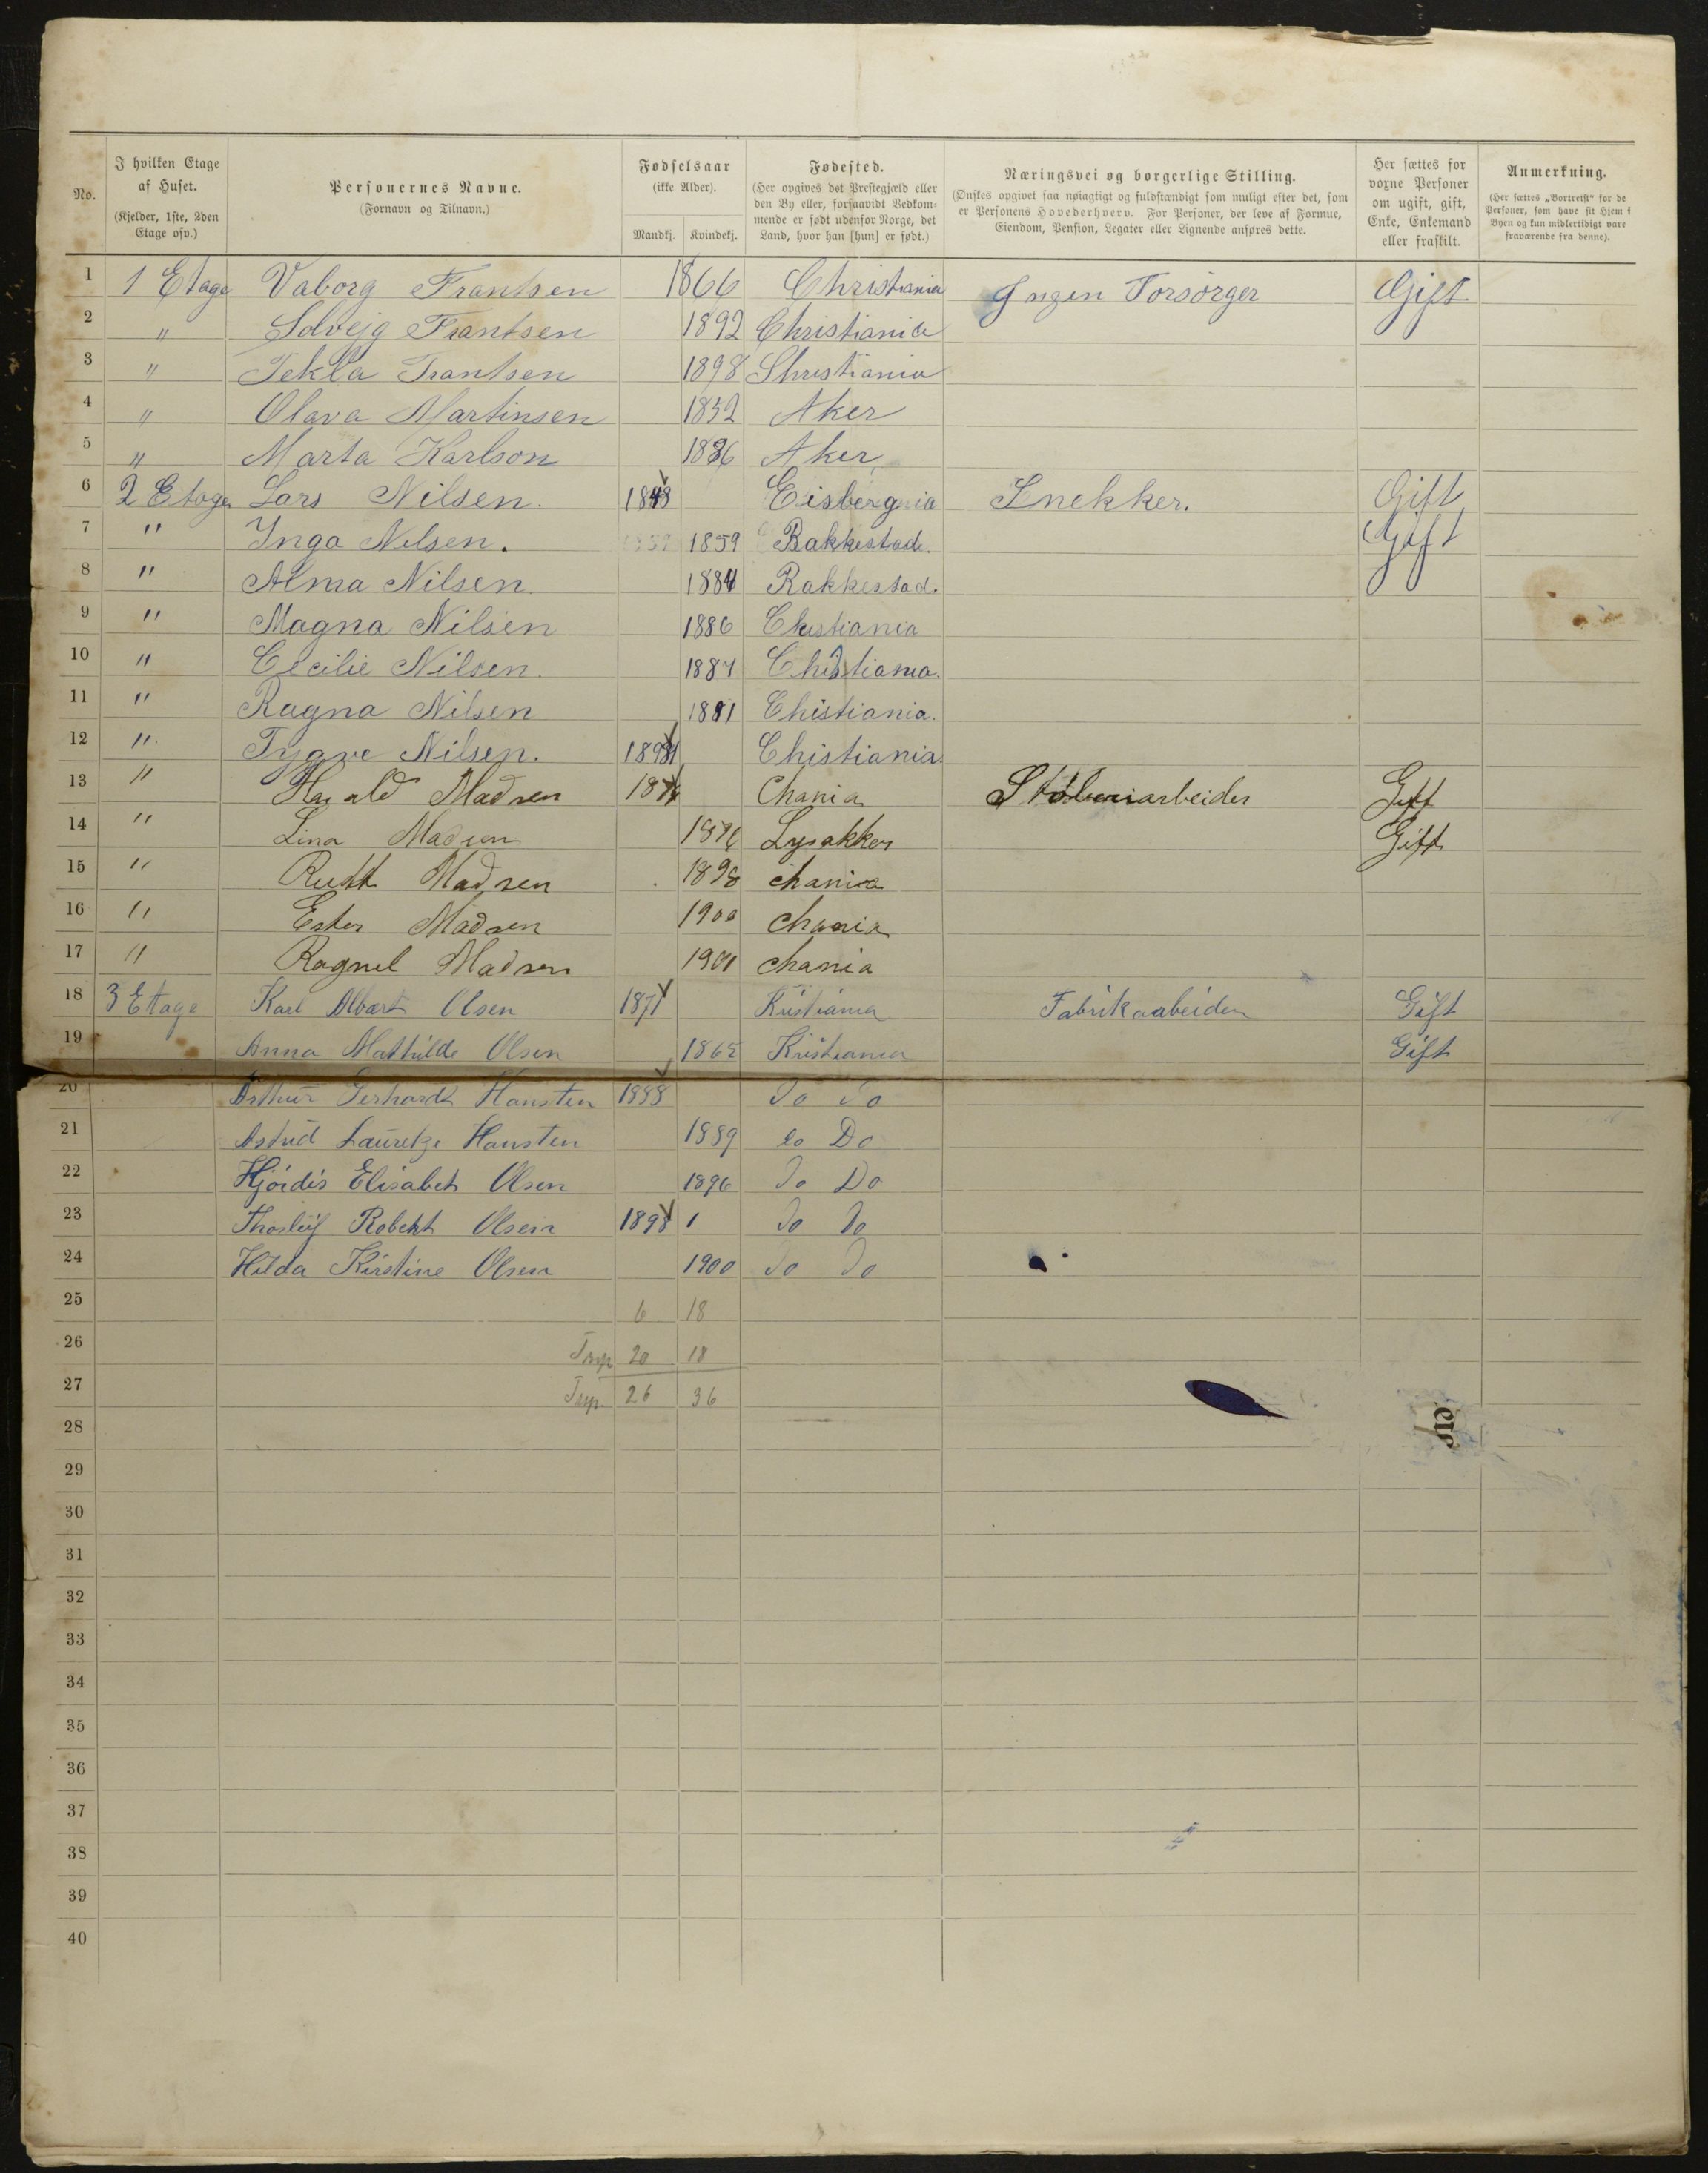 No.
I hvilken Etage af Huset. (Kjelder, 1ste, 2den Etage osv.)
Personernes Navne. (Fornavn og Tilnavn.)
Fødselsaar (ikke Alder). Mandkj. Kvindekj.
Fødested. (Her opgives det Præstegjæld eller den By eller, forsaavidt Vedkommende er født udenfor Norge, det Land, hvor han [hun] er født.)
Næringsvei og borgerlige Stilling. (Ønskes opgivet saa nøiagtigt og fuldstændigt som muligt efter det, som er Personens Hovederhverv. For Personer, der leve af Formue, Eiendom, Pension, Legater eller Lignende anføres dette.
Her sættes for voxne Personer om ugift, gift, Enke, Enkemand eller fraskilt.
Anmerkning. (Her sættes „Bortreist“ for de Personer, som have sit Hjem i Byen og kun midlertidigt vare fraværende fra denne).
1 1 Etage Vaborg Frantsen 1866 Christiania Ingen Forsörger Gift
2 " Solvejg Frantsen 1892 Christiania
3 " Tekla Frantsen 1898 Christiania
4 " Olava Martinsen 1832 Aker
5 " Marta Karlson 1886 Aker
6 2 Etage Lars Nilsen. 1848 Eisberg Snekker. Gift
7 " Inga Nilsen. 1859 Rakkestade. Gift
8 " Alma Nilsen. 1884 Rakkestad.
9 " Magna Nilsen 1886 Chistiania
10 " Cecilie Nilsen. 1887 Chistiania.
11 " Ragna Nilsen 1891 Chistiania.
12 " Tygve Nilsen. Chistiania.
13 " Harald Madsen Chania Støberiarbeider Gift
14 " Lina Madsen 1876 Lysakker Gift
15 " Ruth Madsen 1898 chania
16 " Ester Madsen 1900 chania
17 " Ragnel Madsen 1901 chania
18 3 Etage Karl Albart Olsen 1871 Kristiania Fabrikaarbeider Gift
19 Anna Mathilde Olsen 1865 Kristiania Gift
20 Arthur Gerhardt Hansten 1888 Do Do
21 Astrid Lauretze Hansten 1889 Do Do
22 Hjördis Elisabet Olsen 1896 Do Do
23 Thorleif Robert Olsen 1898 1 Do Do
24 Hilda Kirstine Olsen 1900 Do Do
25 6 18
26 Trsp 20 18
27 Trsp. 26 36
28
29
30
31
32
33
34
35
36
37
38
39
40